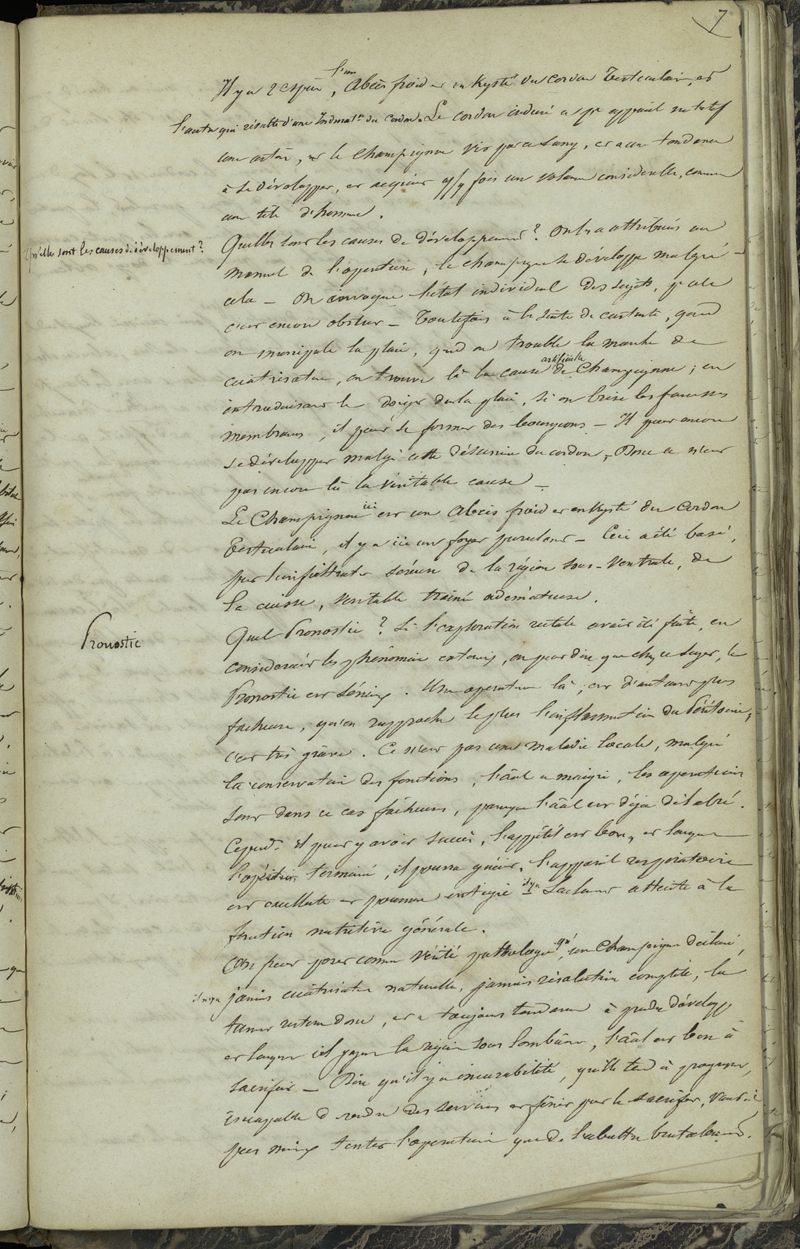 7
Il y a 2 espèces, l'un Abcès froid et enkysté du cordon Testiculaire, et
l'autre qui résulte d'une Indurat.on du cordon. Le cordon induré a pr appareil nutritif
une artère, et le champignon vit par ce sang, et a une tendance
à se développer, et acquiert q/q fois un volume considérable, comme
une tête d'homme.
Qu'elles sont les causes de développement?
Quelles sont les causes de développement? On les a attribués au
manuel de l'opérateur, le champignon se développe malgré
cela — On invoque l'état individuel des sujets, cela
est encore obscur — Toutefois à la suite de castrat, quand
on manipule la plaie, quand on trouble la marche de
cicatrisation, on trouve là la cause artificielle de Champignon; en
introduisant le doigt dans la plaie, si on brise les fausses
membranes, il peut se former des bourgeons — Il peut encore
se développer malgré cette du cordon, Donc ce n'est
pas encore là la véritable cause —
Le Champignon ici est un Abcès froid et enkysté du Cordon
Testiculaire, il y a ici un foyer purulent — Ceci a été basé,
par l'infiltration séreuse de la région sous-ventrale, de
la cuisse, véritable trainé œdémateuse.
Pronostic
Quel Pronostic? Si l'exploration rectale avait été faite, en
considérant les phénomènes, on peut dire que chez ce sujet, le
Pronostic est sérieux. Une opération là, est d'autant plus
facheuse, qu'on rapproche le plus l'inflammation du Péritoine,
c'est très grave. Ce n'est pas une maladie locale, malgré
la conservation des fonctions, l'aal a maigri, les opérations
sont dans ce cas fâcheuses, parceque l'aal est déja délabré.
Cepend. il peut y avoir succès, l'appétit est bon, et lorsque
l'opération terminée, il pourra guérir, l'appareil respiratoire
est excellente et poumon intègre atteinte à la
fonction nutritive générale.
On peut poser comme vérité pathologiq. qu'un Champignon déclaré,
il n'y a jamais cicatrisation naturelle, jamais résolution complète, la
tumeur reste donc, et a toujours tendance à prendre dévelopt
et lorsque il gagne la région sous lombaire, l'aal est bon à
sacrifier — Dire qu'il y a incurabilité, qu'elle tend à progresser,
incapable de rendre des services et finir par le sacrifier, vaut-il
pas mieux tenter l'opération que de l'abattre brutalement.